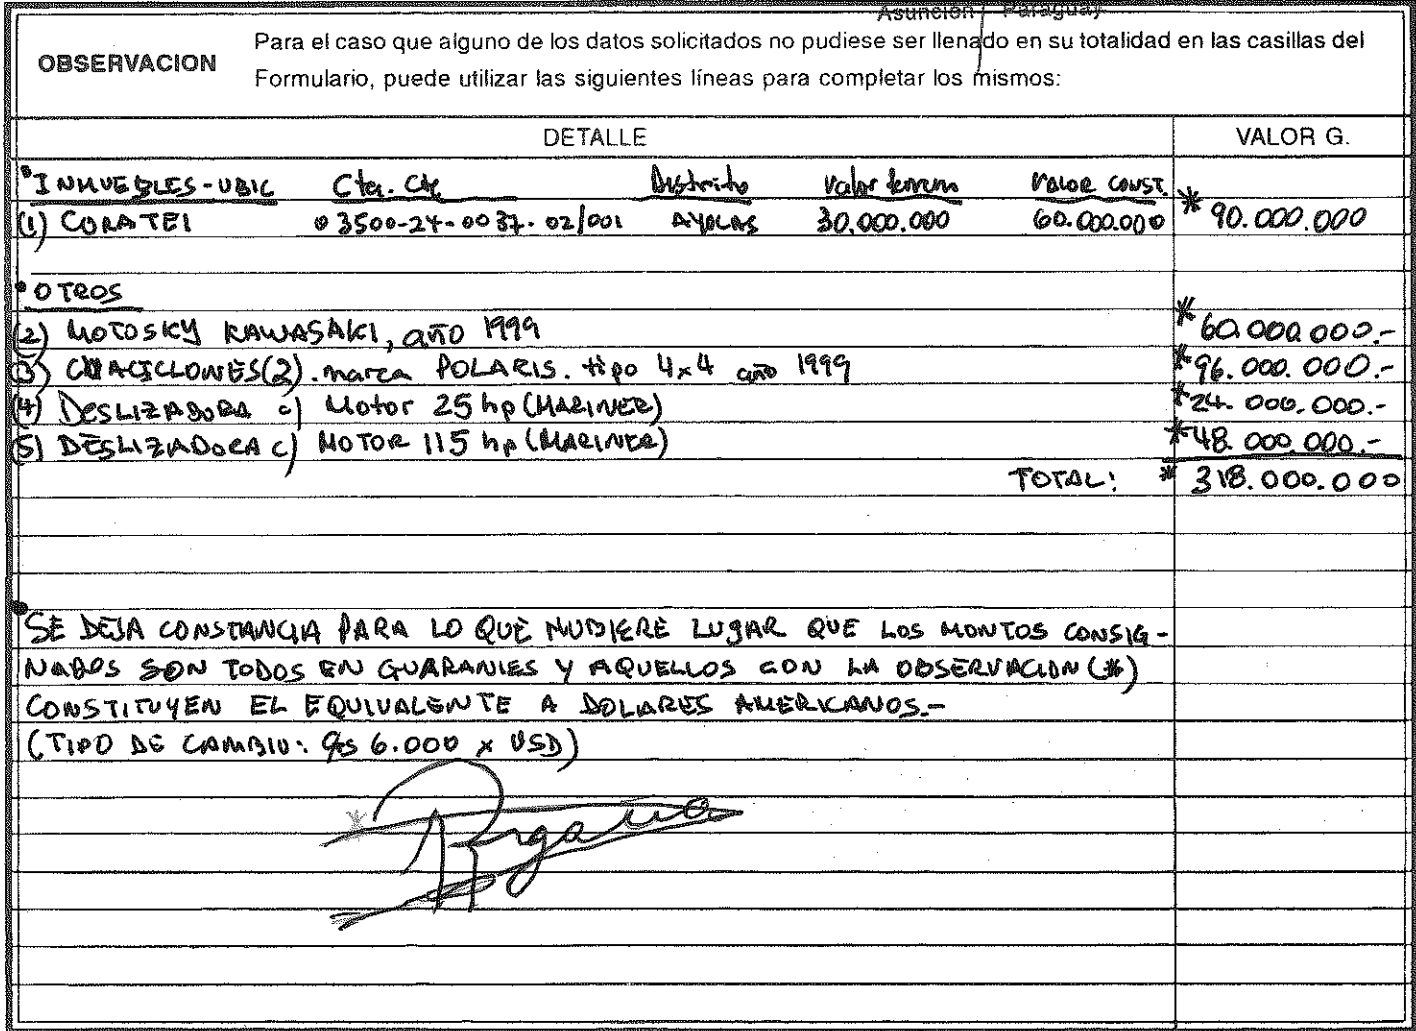 Asunción Paraguay
OBSERVACION
Para el caso que alguno de los datos solicitados no pudiese ser llenado en su totalidad en las casillas del
Formulario, puede utilizar las siguientes líneas para completar los mismos:
DETALLE VALOR G.
INMUEBLES-UBIC Cta. Cte Distrito Valor terreno Valor CONST.
(1) CORATEI 03500-24-0037-02/001 AYOLAS 30.000.000 60.000.000 * 90.000.000
• OTROS
(2) MOTOSKY KAWASAKI, año 1999 * 60.000.000.-
(3) CUACICLONES(2). marca POLARIS. tipo 4x4 año 1999 * 96.000.000.-
(4) DESLIZADORA c) Motor 25 hp (MARINER) * 24.000.000.-
(5) DESLIZADORA c) MOTOR 115 hp (MARINER) * 48.000.000.-
TOTAL: * 318.000.000
• SE DEJA CONSTANCIA PARA LO QUE HUBIERE LUGAR QUE LOS MONTOS CONSIG-
NADOS SON TODOS EN GUARANIES Y AQUELLOS CON LA OBSERVACION (*)
CONSTITUYEN EL EQUIVALENTE A DOLARES AMERICANOS.-
(TIPO DE CAMBIO: Gs 6.000 x USD)